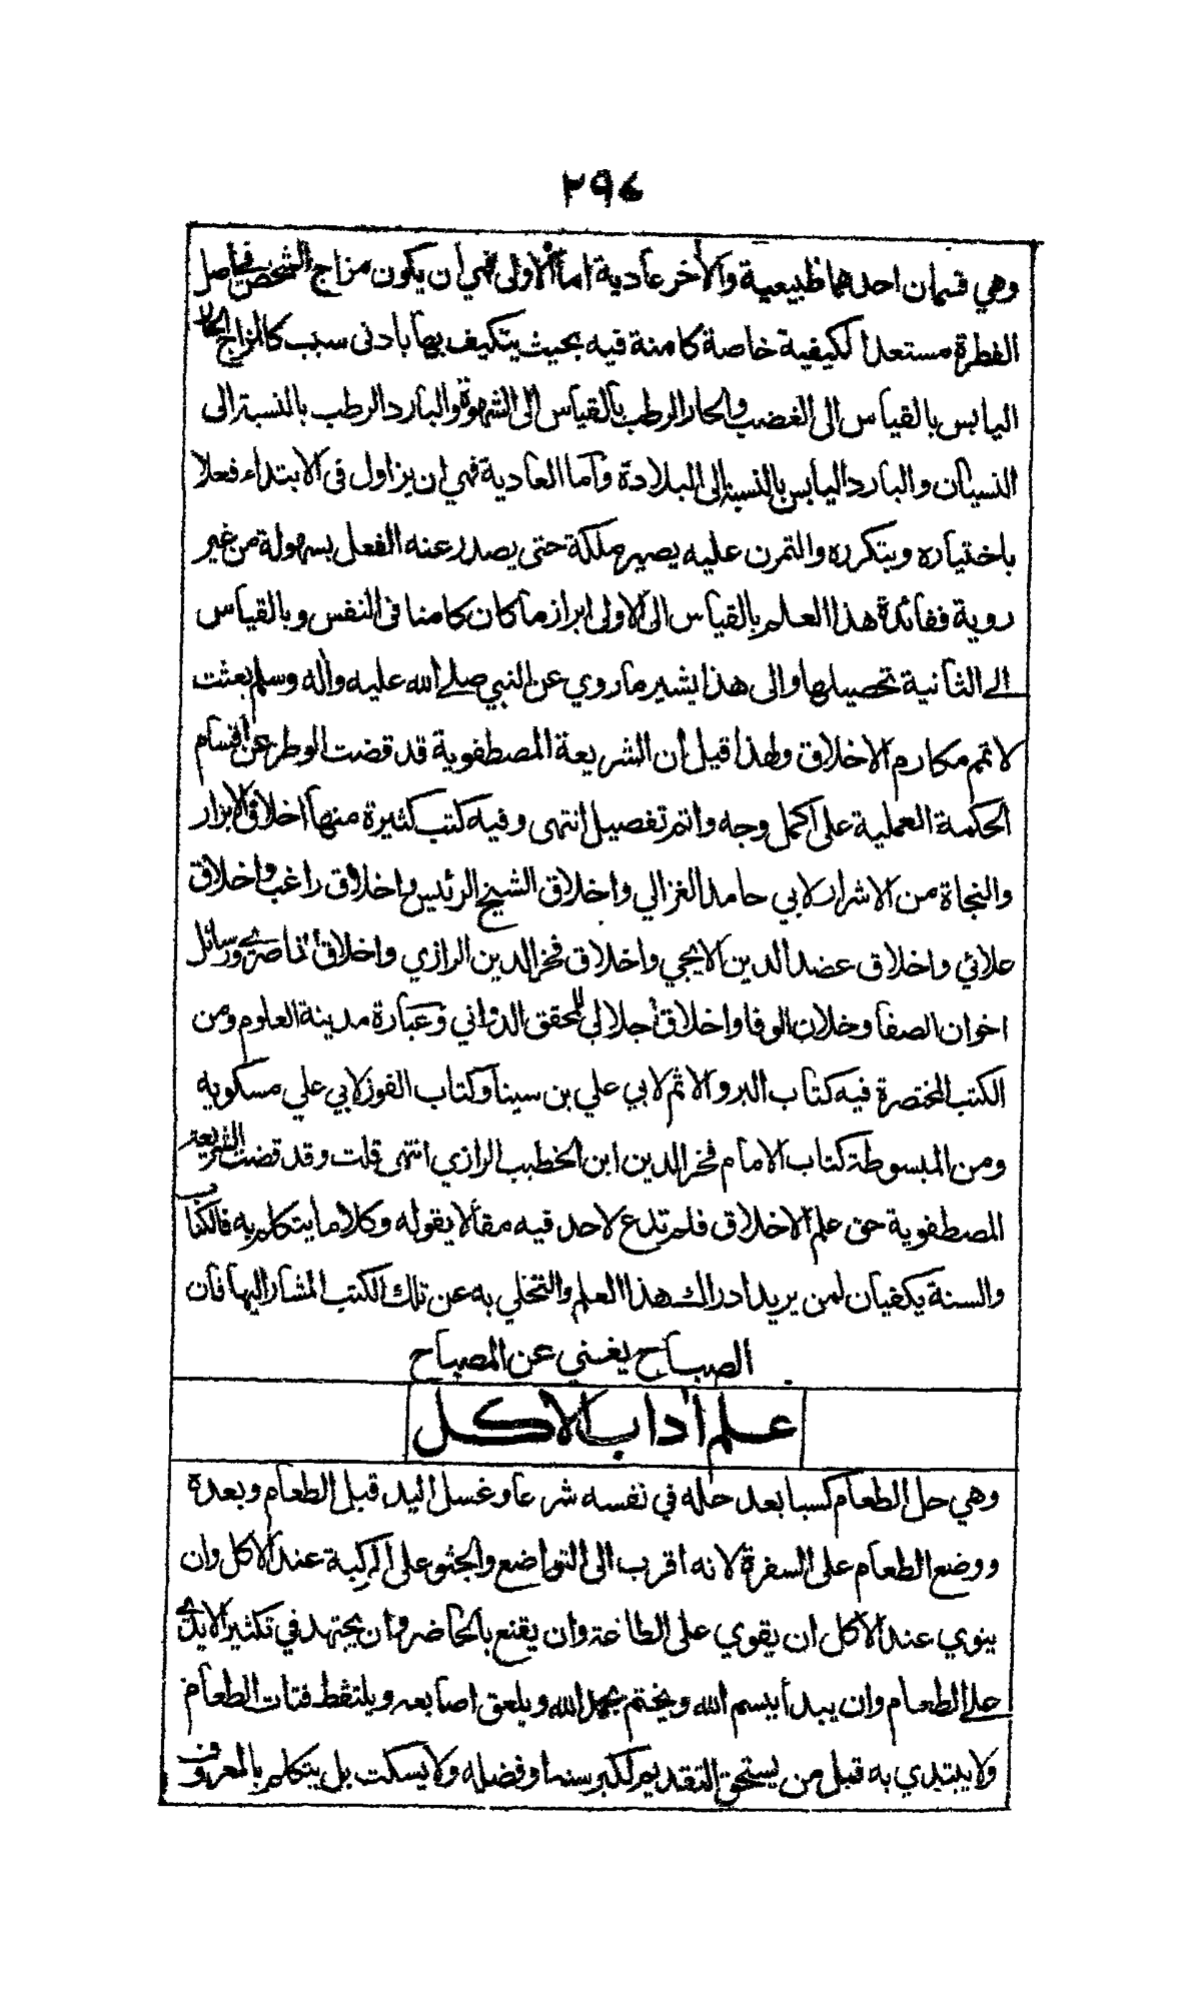 ٢٩٤
وهي قسمان احدهما طبيعية والأخر عادية اما الاولى فهي ان يكون مزاج الشخص في اصل
الفطرة مستعدا لكيفية خاصة كامنة فيه بحيث يتكيف بها بادنى سبب كالمزاج الحار
اليابس بالقياس الى الغضب والحار الرطب بالقياس الى الشهوة والبارد الرطب بالنسبة الى
النسيان والبارد اليابس بالنسبة الى البلادة وأما العادية فهي ان يزاول في الابتداء فعلا
باختياره وبتكرره والتمرن عليه يصير ملكة حتى يصدر عنه الفعل بسهولة من غير
روية ففائدة هذا العلم بالقياس الى الاولى ابراز ما كان كامنا في النفس وبالقياس
الى الثانية تحصيلها والى هذا يشير ما روي عن النبي صلى الله عليه وأله وسلم بعثت
لاتمم مكارم الاخلاق ولهذا قيل ان الشريعة المصطفوية قد قضت الوطر عن اقسام
الحكمة العملية على اكمل وجه واتم تفصيل انتهى وفيه كتب كثيرة منها اخلاق الابرار
والنجاة من الاشرار لابي حامد الغزالي واخلاق الشيخ الرئيس واخلاق راغب واخلاق
علائي واخلاق عضد الدين الايجي واخلاق فخر الدين الرازي واخلاق ناصري ورسائل
اخوان الصفا وخلان الوفا واخلاق جلالي للمحقق الدواني وعبارة مدينة العلوم ومن
الكتب المختصرة فيه كتاب البر والاثم لابي علي بن سينا وكتاب الفوز لابي علي مسكويه
ومن المبسوطة كتاب الامام فخر الدين ابن الخطيب الرازي انتهى قلت وقد قضت الشريعة
المصطفوية حق علم الاخلاق فلم تدع لاحد فيه مقالا يقوله وكلاما يتكلم به فالكتاب
والسنة يكفيان لمن يريد ادراك هذا العلم والتحلي به عن تلك الكتب المشار اليها فان
الصباح يغني عن المصباح
علم أداب الاكل
وهي حل الطعام كسبا بعد حله في نفسه شرعا وغسل اليد قبل الطعام وبعده
ووضع الطعام على السفرة لانه اقرب الى التواضع والجثو على الركبة عند الاكل وان
ينوي عند الأكل ان يقوي على الطاعة وان يقنع بالحاضر وان يجتهد في تكثير الايدي
على الطعام وان يبدأ ببسم الله ويختم بحمد الله ويلعق اصابعه ويلتقط فتات الطعام
ولا يبتدي به قبل من يستحق التقديم لكبر سنه او فضله ولا يسكت بل يتكلم بالمعروف